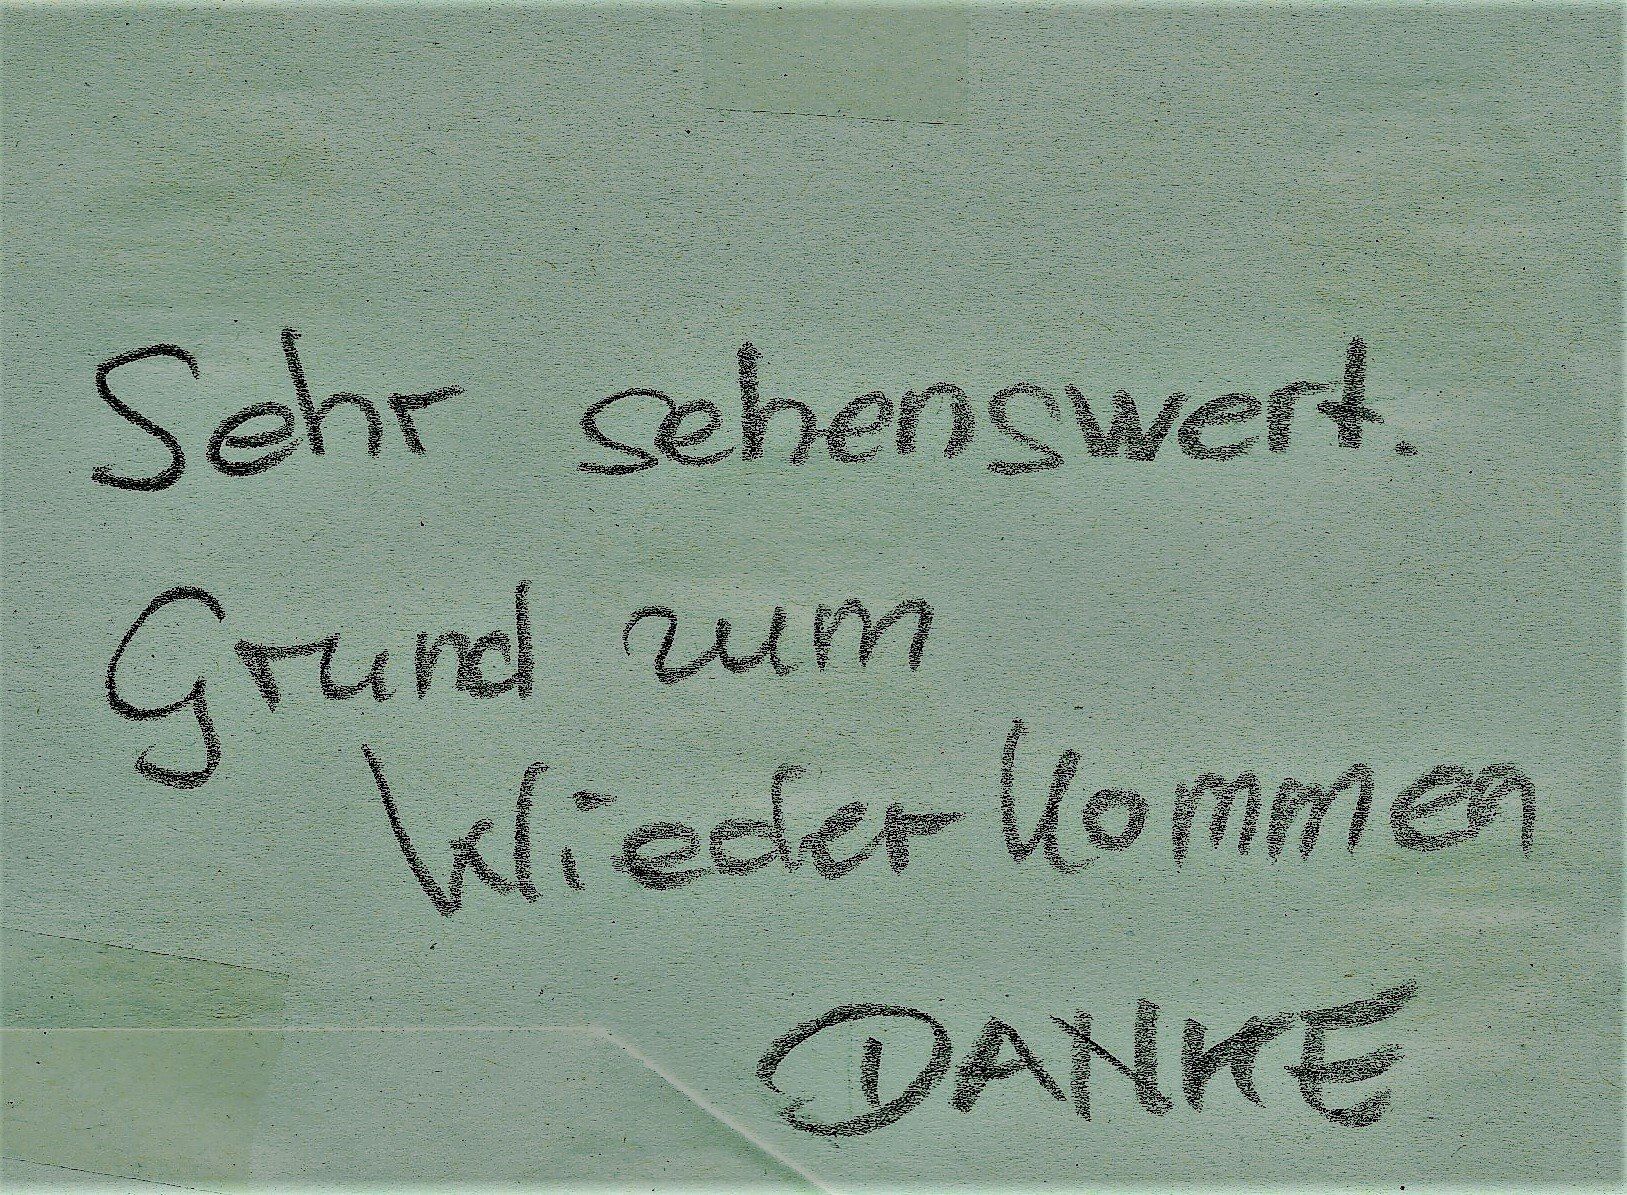 Sehr sehenswert.
Grund zum
Wiederkommen
DANKE